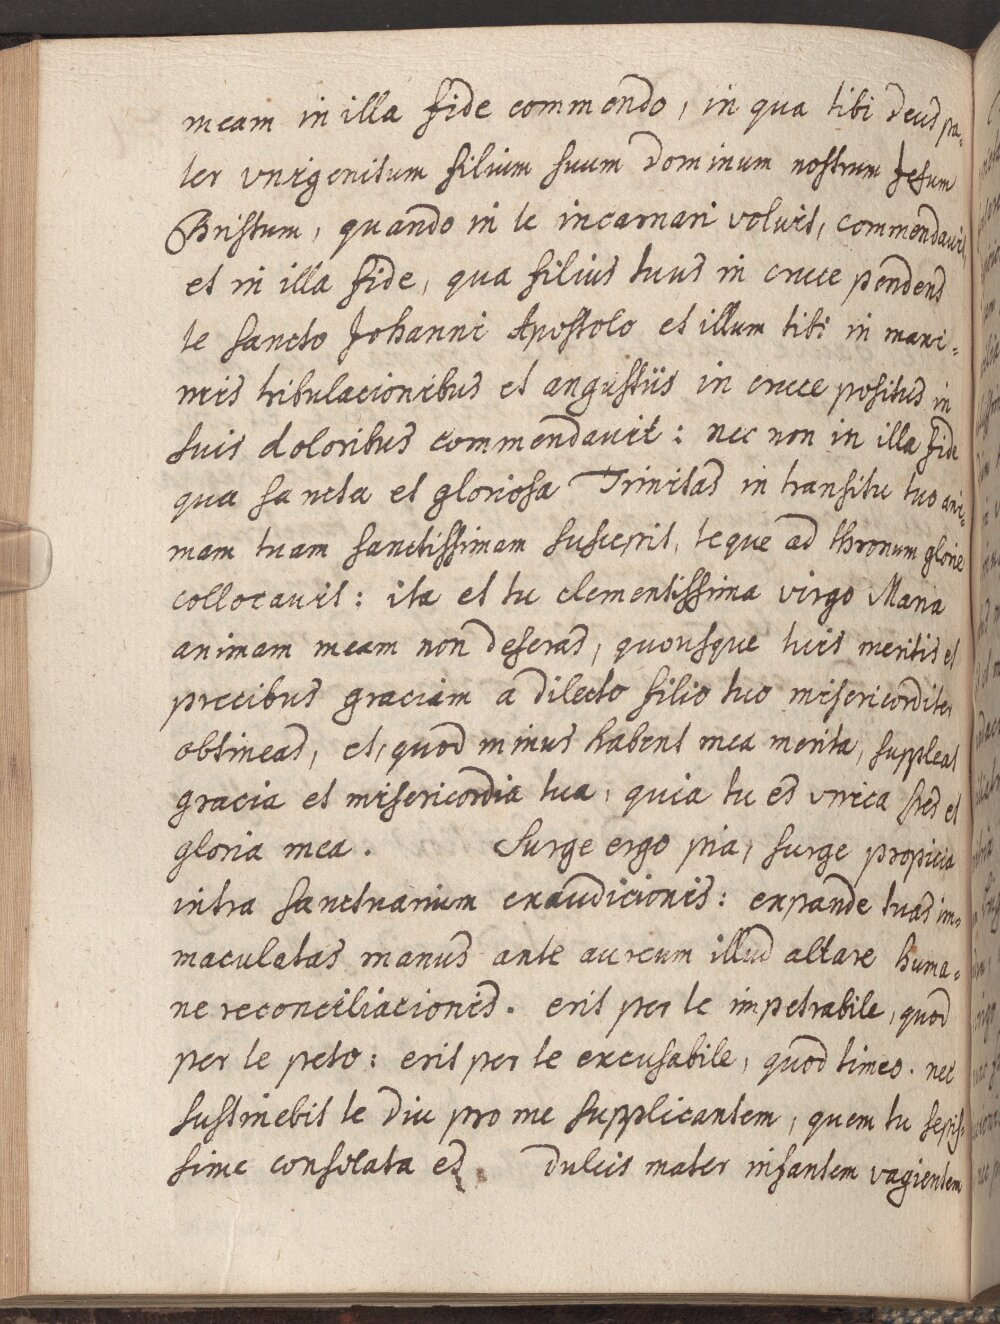 meam in illa fide commendo, in qua tibi Deus pa-
ter vnigenitum filium suum dominum nostrum Jesum
Christum, quando in te incarnari voluit, commendavit
et in illa fide, qua filius tuus in cruce pendens
te sancto Johanni Apostolo et illum tibi in maxi-
mis tribulacionibus et angustiis in cruce positus in
suis doloribus commendavit: nec non in illa fide
qua sancta et gloriosa Trinitas in transitu tuo ani-
mam tuam sanctissimam suscepit, teque ad thronum glorie
collocavit: ita et tu clementissima virgo Maria
animam meam non deseras, quousque tuis meritis et
precibus graciam a dilecto filio tuo misericorditer
obtineas, et, quod minus habent mea merita, suppleat
gracia et misericordia tua, quia tu es vnica spes et
gloria mea. Surge ergo pia, surge propicia
intra sanctuarium exaudicionis: expande tuas im-
maculatas manus ante aureum illud altare huma-
ne reconciliacionis. erit per te impetrabile, quod
per te peto: erit per te excusabile, quod timeo. nec
sustinebit te diu pro me supplicantem, quem tu sepis-
sime consolata es. Dulcis mater infantem vagientem